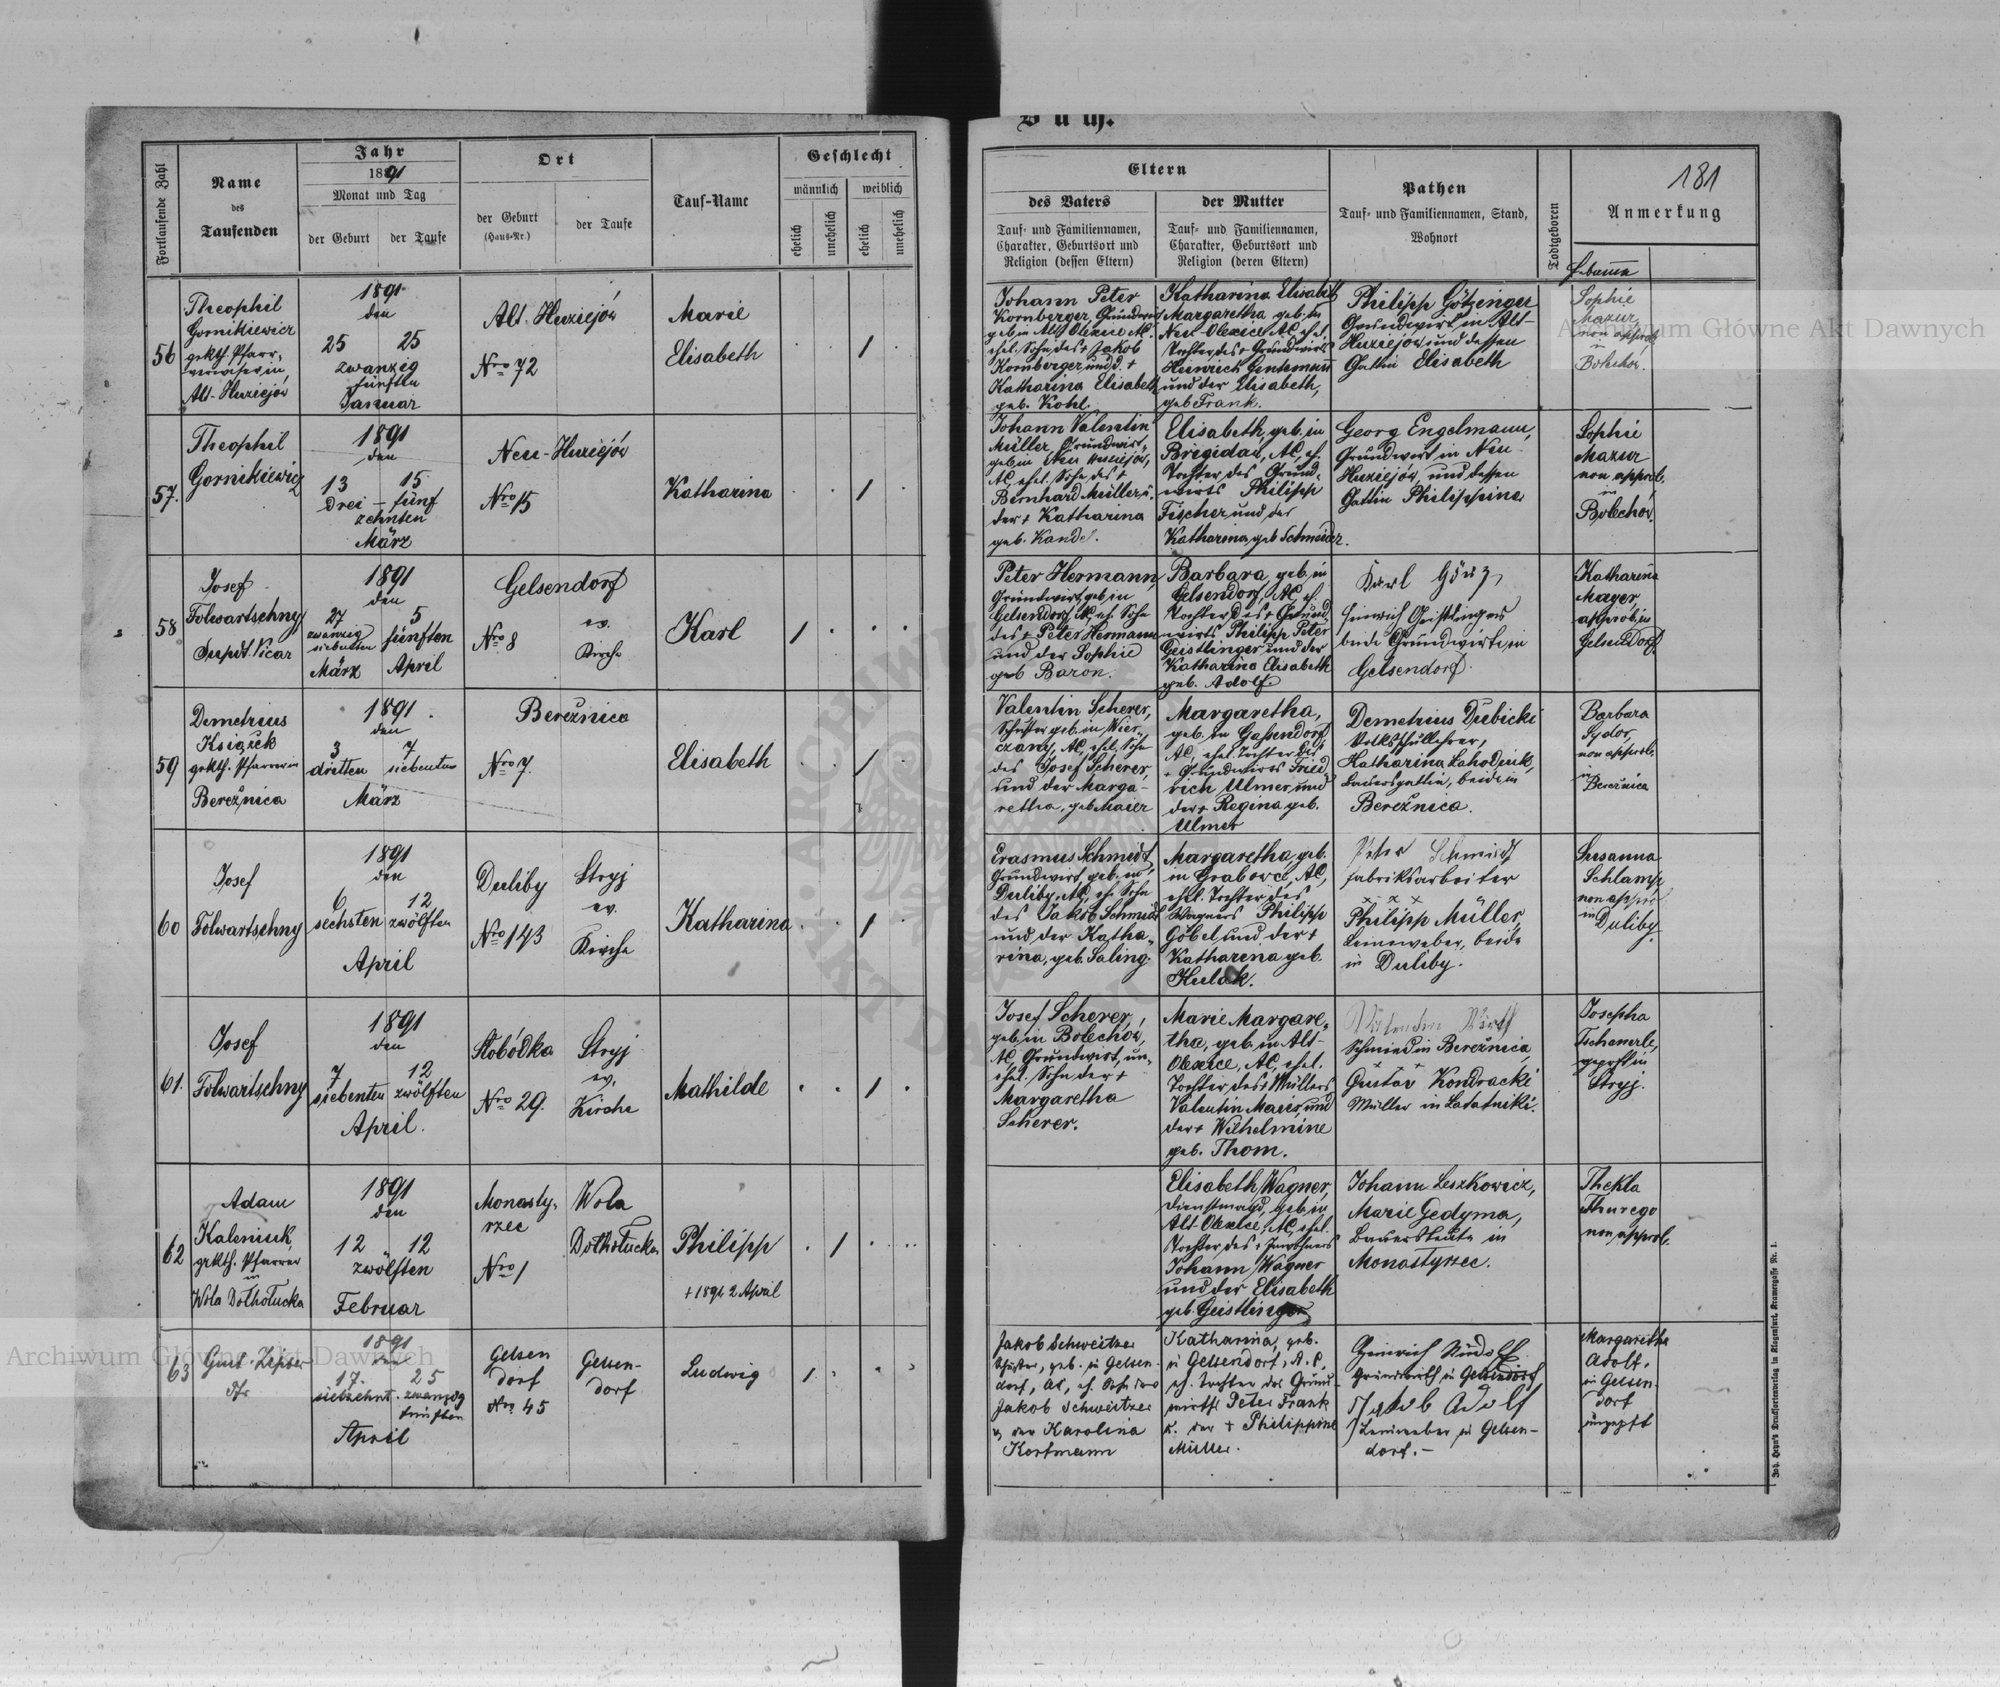 Buch.
Fortlaufende Zahl
Name
des
Taufenden
Jahr
1891
Monat und Tag
der Geburt
der Taufe
Ort
der Geburt
(Haus-Nr.)
der Taufe
Tauf-Name
Geschlecht
männlich
weiblich
ehelich
unehelich
ehelich
unehelich
Eltern
des Vaters
Tauf- und Familiennamen,
Charakter, Geburtsort und
Religion (dessen Eltern)
der Mutter
Tauf- und Familiennamen,
Charakter, Geburtsort und
Religion (deren Eltern)
Pathen
Tauf- und Familiennamen, Stand,
Wohnort
Todtgeboren
181
Anmerkung
Hebamme
56
Theophil
Gornikiewicz
grkth. Pfarr-
verweser in
Alt-Huziejów
1891
den
25 25
zwanzig
fünften
Januar
Alt-Huziejów
Nro 72
Marie
Elisabeth
Johann Peter
Kornberger Grundwirt
geb. in Alt Olexice AC
ehel. Sohn des + Jakob
Kornberger und d. +
Katharina Elisabeth
geb. Kohl.
Katharina Elisabeth
Margaretha geb. in
Neu-Olexice AC, ehel.
Tochter des + Grundwirts
Heinrich
und der Elisabeth,
geb. Frank.
Philipp Götzinger
Grundwirt in Alt-
Huziejów und dessen
Gattin Elisabeth
Sophie
Mazur
non approb.
in
Bolechów.
57.
Theophil
Gornikiewicz
1891
den
13 15
Drei – fünf
zehnten
März
Neu-Huziejów
Nro 15
Katharina
Johann Valentin
Müller Grundwirt,
geb. in Neu Huziejów,
AC, ehel. Sohn des +
Bernhard Müller u.
der + Katharina
geb. Kandel.
Elisabeth, geb. in
Brigidau, AC, eh.
Tochter des Grund-
wirts Philipp
Fischer und der
Katharina, geb. Schneider.
Georg Engelmann,
Grundwirt in Neu-
Huziejów, und dessen
Gattin Philippine
Sophie
Mazur
non approb.
in
Bolechów.
58
Josef
Folwartschny
Supdt. Vicar
1891
den
27 5
zwanzig
siebenten fünften
März April
Gelsendorf
Nro 8
ev.
Kirche
Karl
Peter Hermann,
Grundwirt, geb. in
Gelsendorf, AC, eh. Sohn
des + Peter Hermann
und der Sophie
geb. Baron.
Barbara, geb. in
Gelsendorf, AC, eh.
Tochter des + Grund-
wirts Philipp Peter
Geistlinger und der
Katharina Elisabeth
geb. Adolf.
Karl
Heinrich Geistlinger
beide Grundwirte, in
Gelsendorf.
Katharina
Mayer,
approb. in
Gelsendorf.
59
Demetrius
Książek
grkth. Pfarrer in
Berežnica
1891
den
3 7
dritten siebenten
März
Berežnica
Nro 7.
Elisabeth
Valentin Scherer,
Schuster geb. in Wier-
czany, AC, ehel. Sohn
des Josef Scherer,
und der Marga-
retha, geb. Maier
Margaretha,
geb. in Gassendorf
AC, ehel. Tochter des
+ Grundwirts Fried-
rich Ulmer, und
der + Regina geb.
Ulmer
Demetrius Dubicki
Volksschullehrer,
Katharina
Bauersgattin, beide in
Berežnica.
Barbara
Sydor,
non approb.
in
Berežnica
60
Josef
Folwartschny
1891
den
6 12
sechsten zwölften
April
Duliby
Nro 143
Stryj
ev.
Kirche
Katharina
Erasmus Schmidt,
Grundwirt, geb. in
Duliby, AC, eh. Sohn
des Jakob Schmidt
und der Katha-
rina, geb. Saling.
Margaretha, geb.
in Grabowce, AC,
ehel. Tochter des
Wagners Philipp
Göbel und der +
Katharina geb.
Peter Schmidt
Fabriksarbeiter
x x x
Philipp Müller,
Leineweber, beide
in Duliby.
Susanna
Schlamp
non approb.
in
Duliby.
61.
Josef
Folwartschny
1891
den
7 12
siebenten zwölften
April.
Słobódka
Nro 29.
Stryj
ev.
Kirche
Mathilde
Josef Scherer,
geb. in Bolechów,
AC, Grundwirt, un-
ehel. Sohn der +
Margaretha
Scherer.
Marie Margare-
tha, geb. in Alt-
Olexice, AC, ehel.
Tochter des + Müllers
Valentin Maier, und
der + Wilhelmine
geb. Thom.
Schmied in Berežnica,
Gustav Kondracki
Müller in
Josepha
Tschamerle,
geprft in
Stryj.
62
Adam
Kaleniuk
grkth. Pfarrer
in
Wola Dołhołucka
1891
den
12 12
zwölften
Februar
Monasty-
rzec
Nro 1
Wola
Dołhołucka
Philipp
+ 1891 2 April
Elisabeth Wagner,
Dienstmagd, geb. in
Alt Olexice, AC, ehel.
Tochter des + Inwohners
Johann Wagner
und der Elisabeth
geb. Geistlinger
Johann Leszkowicz,
Marie Gedyma,
Bauersleute in
Monastyrzec.
Thekla
non approb.
63
Gust. Zipser
Pfr
1891
den
17. 25
siebzehnt. zwanzig
fünften
April
Gelsen
dorf
Nro 45
Gelsen-
dorf
Ludwig
Jakob Schweitzer
Schuster, geb. in Gelsen-
dorf, AC, eh. Sohn des
Jakob Schweitzer
u. der Karolina
Kortmann
Katharina, geb.
in Gelsendorf, A.C.,
eh. Tochter des Grund-
wirths Peter Frank
u. der + Philippine
Müller.
Heinrich Rudolf
Grundwirth in Gelsendorf
Jakob Adolf
Leineweber in Gelsen-
dorf. –
Margaretha
Adolf.
in Gelsen-
dorf
ungeprft
Joh. Heyn's Drucksortenverlag in Klagenfurt, Kramergasse Nr. 1.
Archiwum Główne Akt Dawnych
Archiwum Główne Akt Dawnych